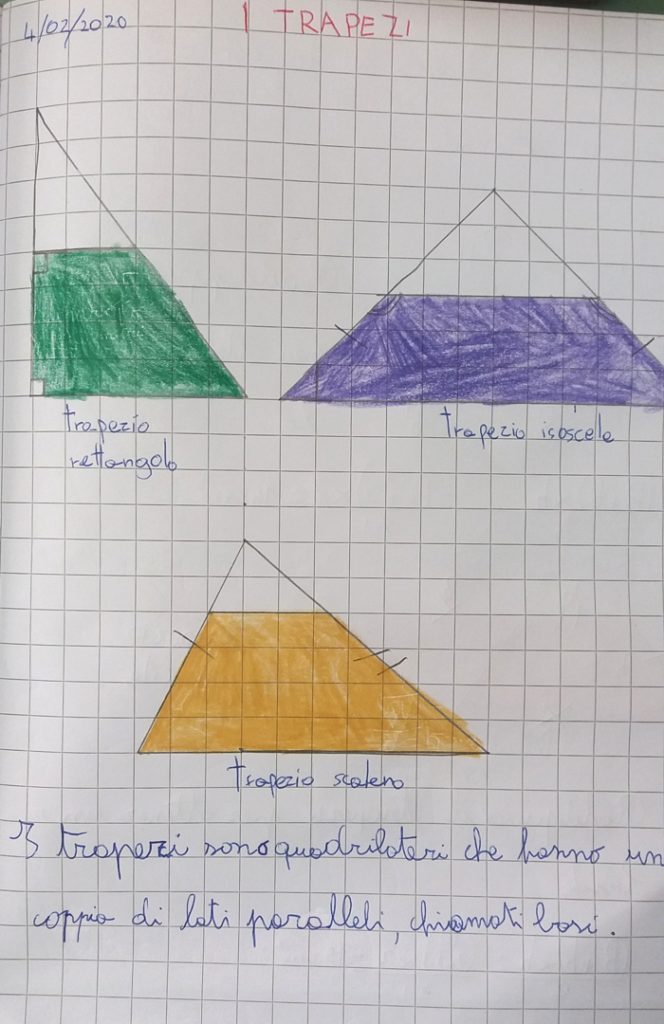 4/02/2020
I TRAPEZI
trapezio
rettangolo
trapezio isoscele
trapezio scaleno
I trapezi sono quadrilateri che hanno un
coppia di lati paralleli, chiamati basi.